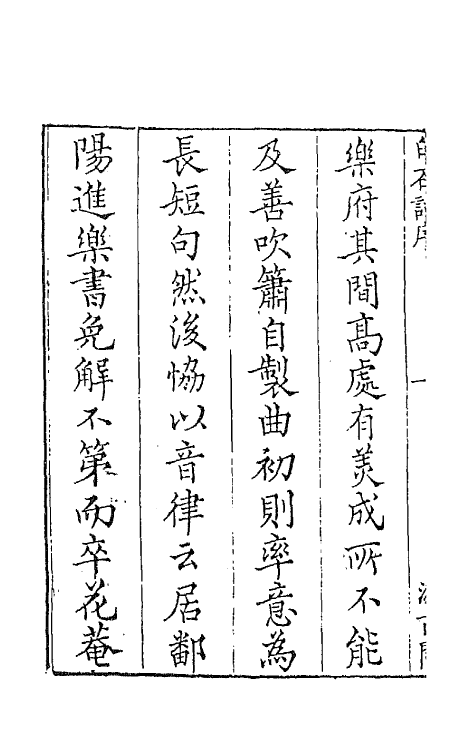 樂府其間髙處有美成所不能
及善吹簫自製曲初則率意為
長短句然後恊以音律云居鄱
陽進樂書免解不第而卒花菴